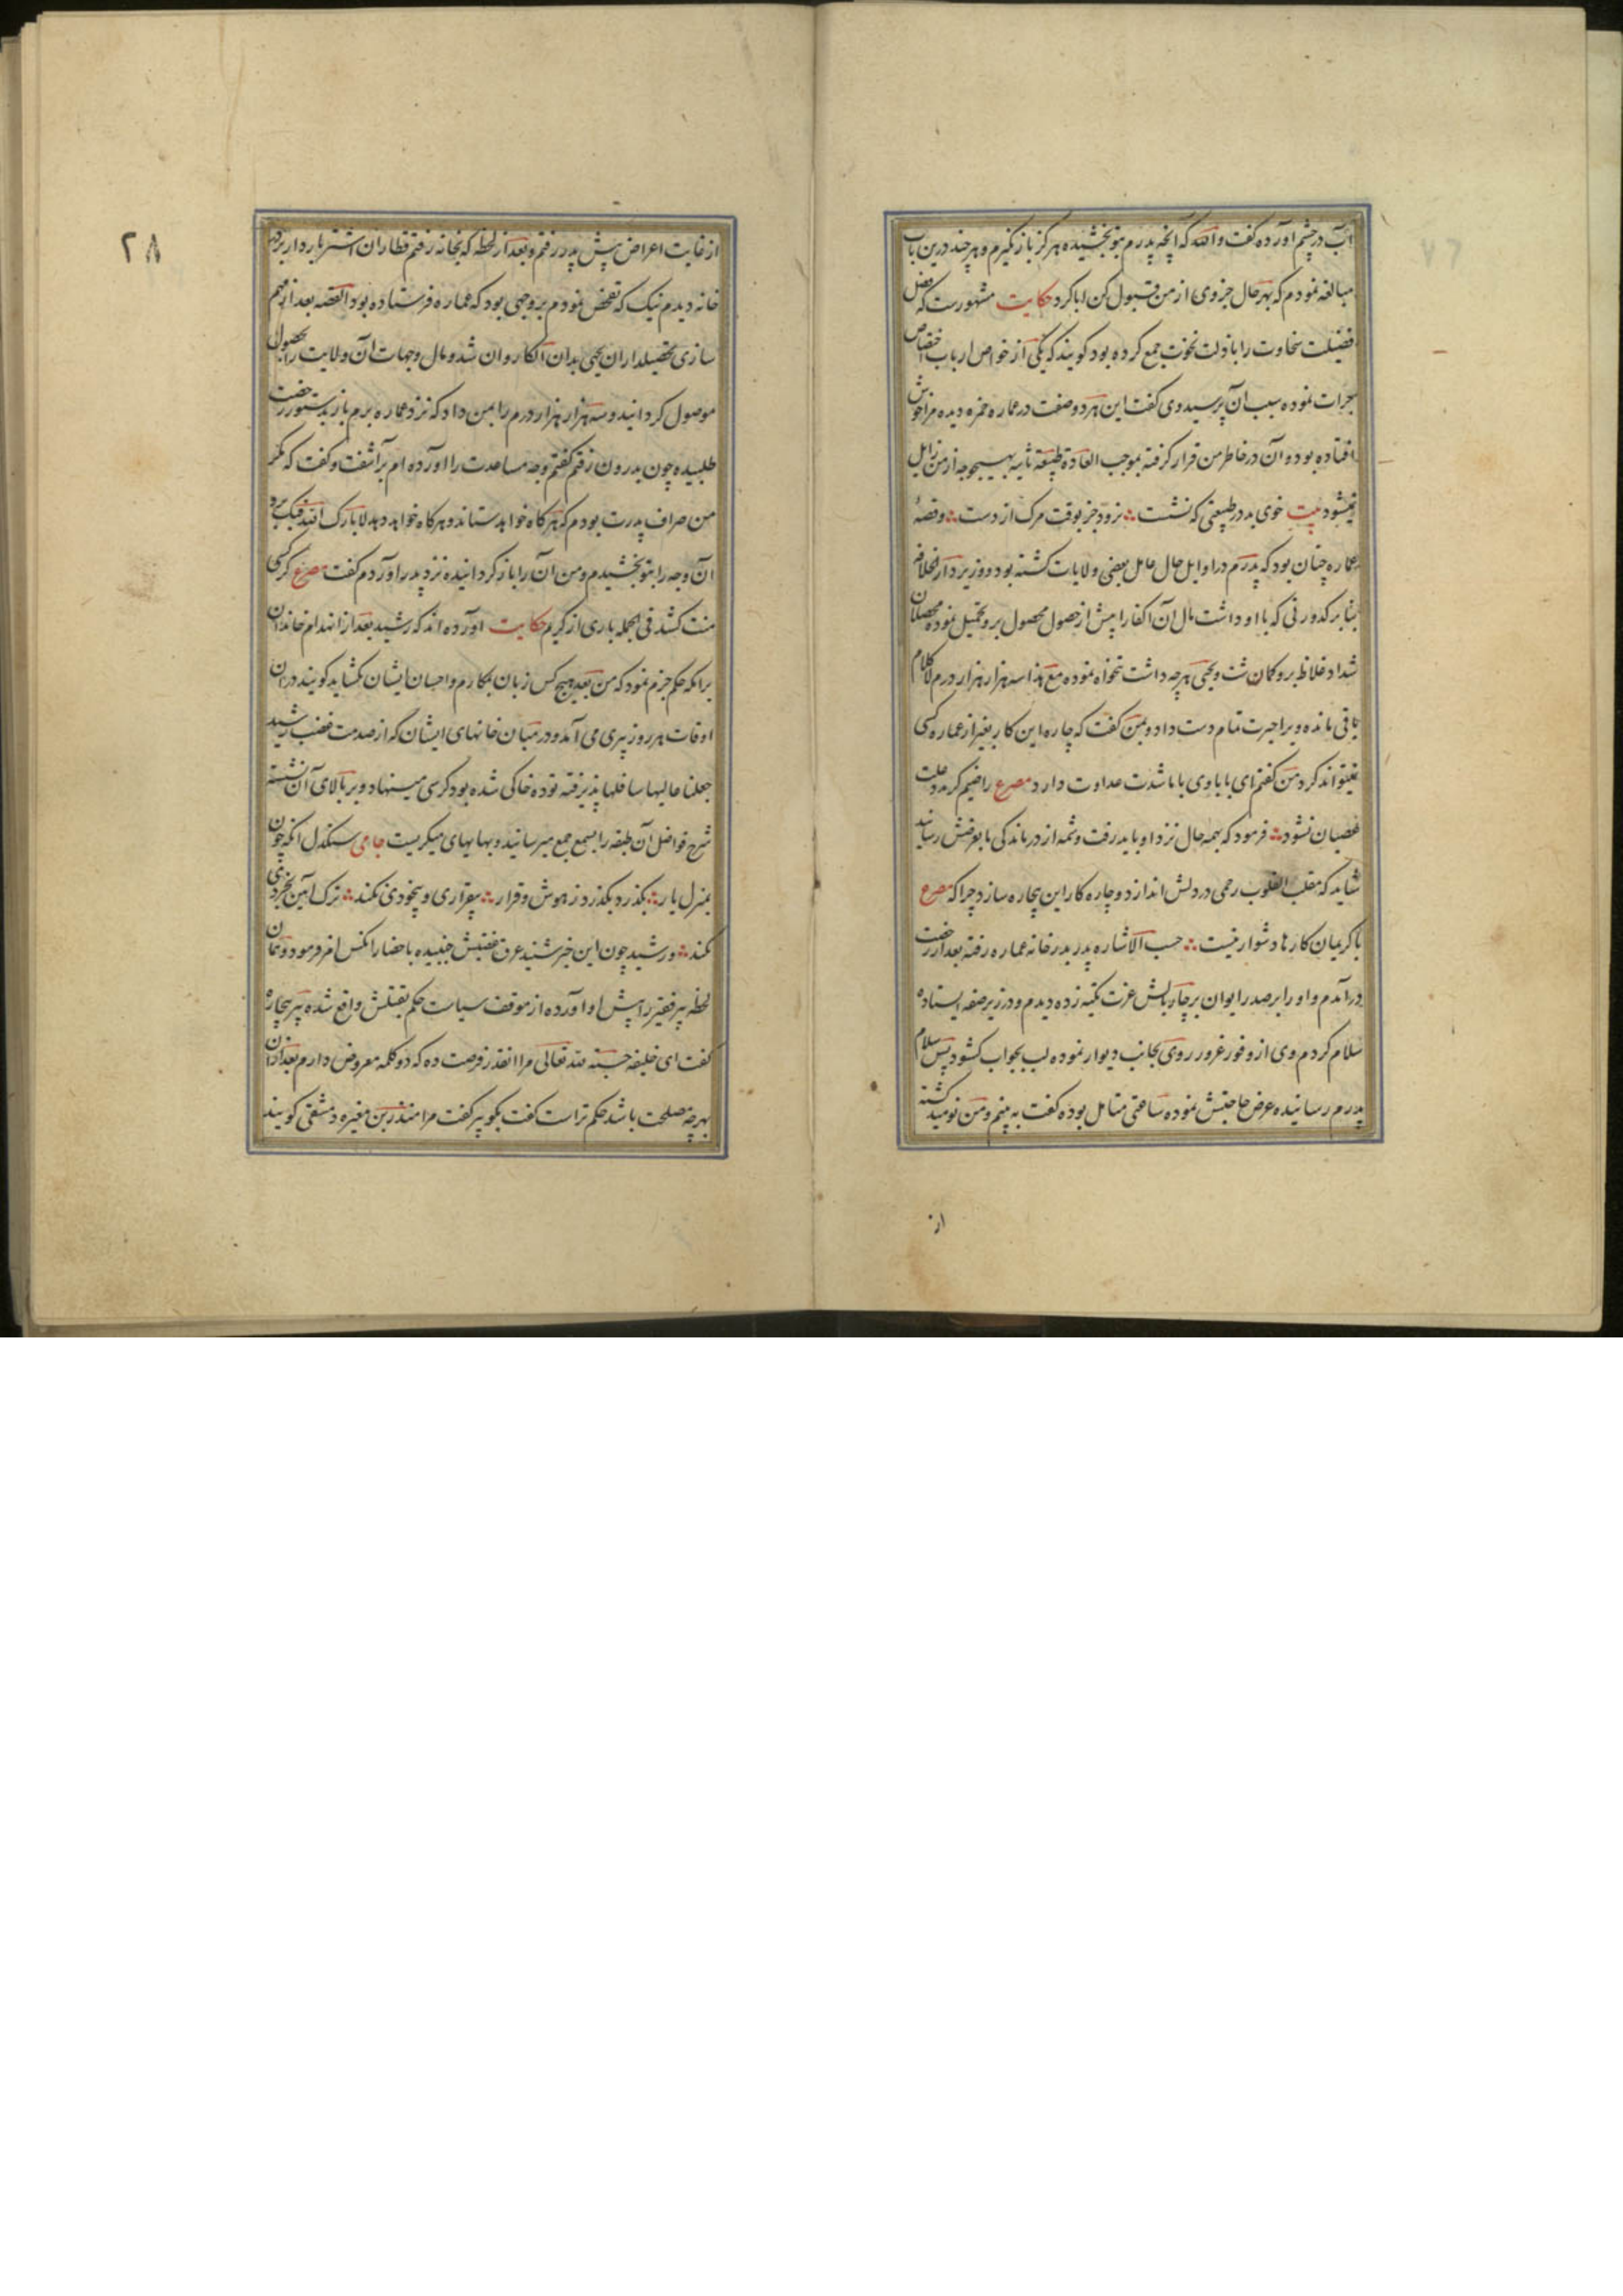 آب در چشم اورده گفت والله که آنچه پدرم بتو بخشیده هرگز باز نگیرم و هر چند درین باب
مبالغه نمودم که بهر حال جزوی از من قبول کن ابا کرد حکایت مشهورست که فضل
فضیلت سخاوت را با ذلت نخوت جمع کرده بود کویند که یکی از خواص ارباب اختصاص
جرات نموده سبب آن پرسید وی گفت این هر دو صفت در عماره حمزه دیده مرا خوش
افتاده بود و آن در خاطر من قرار گرفته بموجب العادة طبیعة ثانیه بهیچوجه از من زایل
نمیشود بیت خوی بد در طبیعتی که نشست نرود جز بوقت مرک از دست و قصهٔ
عماره چنان بود که پدرم در اوایل حال عامل بعضی ولایات کشته بود و وزیر دار الخلافه
بنا بر کدورتی که با او داشت مال آن الکا را پیش از حصول محصول برو تحمیل نموده محصلان
شداد غلاظ برو کماشت و یحیی هر چه داشت تنخواه نموده مع هذا سه هزار هزار درم لا کلام
باقی مانده ویرا حیرت تمام دست داد و بمن گفت که چاره این کار بغیر از عماره کسی
نمیتواند کرد من گفتم ای بابا وی با ما شدت عداوت دارد مصرع راضیم گر مدد علت
عصیان نشود فرمود که بهمه حال نزد او باید رفت و شمه از درماندکی ما بعرضش رسانید
شاید که مقلب القلوب رحمی در دلش اندازد و چاره کار این بیچاره سازد چرا که مصرع
با کریمان کارها دشوار نیست حسب الاشاره پدر بدر خانه عماره رفته بعد از رخصت
درآمدم و او را بر صدر ایوان بر چار بالش عزت تکیه زده دیدم و در زیر صفه ایستاده
سلام کردم وی از وفور غرور روی بجانب دیوار نموده لب بجواب کشود پس سلام
پدرم رسانیده عرض حاجتش نموده ساعتی متامل بوده گفت به بینم و من نومید کشته
از
۲۸
از غایت اعراض پیش پدر رفتم و بعد از لحظه که بخانه رفتم قطاران اشتر باردار بر در
خانه دیدم نیک که تفحص نمودم بر وجهی بود که عماره فرستاده بود القصه بعد از مهم
سازی تحصیلداران یحیی بدان الکا روان شد و مال و جهات آن ولایت را بحصول
موصول کردانید و سه هزار هزار درم را بمن داد که نزد عماره برم باز بدستور رخصت
طلبیده چون بدرون رفتم گفتم وجه مساعدت را اورده ام برآشفت و گفت که مگر
من صراف پدرت بودم که هر کاه خواهد ستاند و هر کاه خواهد دهد لا بارک الله فیک برو
آن وجه را بتو بخشیدم و من آن را باز کردانیده نزد پدر آوردم گفت مصرع گر کسی
منت کشد فی الجمله باری از کریم حکایت آورده اند که رشید بعد از انهدام خاندان
برامکه حکم جزم نمود که من بعد هیچ کس زبان بمکارم و احسان ایشان نکشاید کویند در آن
اوقات هر روز پیری می آمد و در میان خانهای ایشان که از صدمت غضب رشید
جعلنا عالیها سافلها پذیرفته توده خاکی شده بود کرسی مینهاد و بر بالای آن نشسته
شرح فواضل آن طبقه را بسمع جمع میرسانید و بهایهای میگریست جامی سنگدل آنکه چون
بمنزل یار بگذرد بگذرد ز هوش و قرار بیقراری و بیخودی نکند ترک آیین بخردی
نکند و رشید چون این خبر شنید عرق غضبش جنبیده باحضار آنکس امر فرمود و همان
لحظه پیر فقیر را پیش او آورده از موقف سیاست حکم بقتلش واقع شده پیر بیچاره
گفت ای خلیفه حسبة لله تعالی مرا انقدر فرصت ده که دو کلمه معروض دارم بعد از آن
بهر چه مصلحت باشد حکم تراست گفت بگو پیر گفت مرا منذر بن مغیره دمشقی کویند